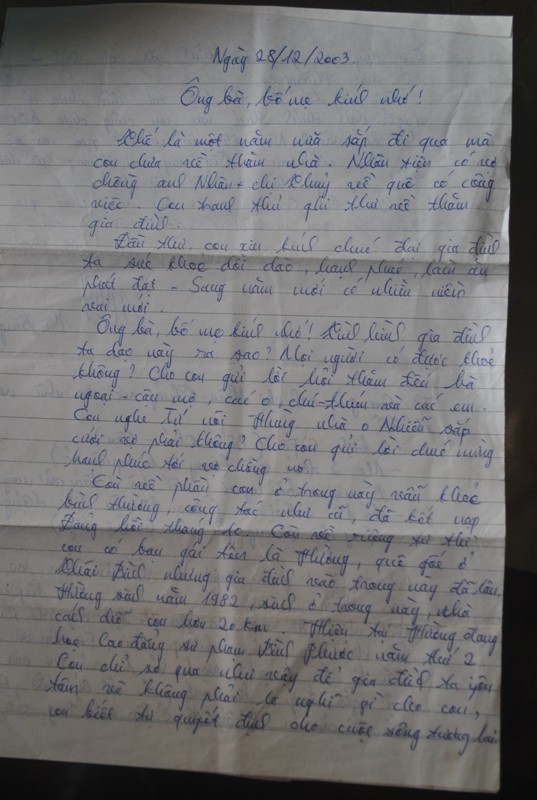 Ngày 28/12/2003.
Ông bà, bố mẹ kính nhớ!
Thế là một năm nữa sắp đi qua mà
con chưa về thăm nhà. Nhân tiện có vợ
chồng anh Nhân + chị Thuỷ về quê có công
việc. Con tranh thủ ghi thư về thăm
gia đình.
Đầu thư con xin kính chúc đại gia đình
ta sức khoẻ dồi dào, hạnh phúc, làm ăn
phát đạt - Sang năm mới có nhiều niềm
vui mới.
Ông bà, bố mẹ kính nhớ! Tình hình gia đình
ta dạo này ra sao? Mọi người có được khoẻ
không? Cho con gửi lời hỏi thăm đến bà
ngoại - cậu mợ, các o chú - thím và các em.
Con nghe Tứ nói Thắng nhà o Nhiễu sắp
cưới vợ phải không? Cho con gửi lời chúc mừng
hạnh phúc tới vợ chồng nó.
Còn về phần con ở trong này vẫn khoẻ
bình thường, công tác như cũ, đã kết nạp
Đảng hồi tháng 10. Còn về riêng tư thì
con có bạn gái tên là Thường, quê gốc ở
Thái Bình nhưng gia đình vào trong này đã lâu,
Thường sinh năm 1982, sinh ở trong này, nhà
cách chỗ con hơn 20 km. Hiện tại Thường đang
học Cao đẳng sư phạm Bình Phước năm thứ 2
Con chỉ sơ qua như vậy để gia đình ta yên
tâm và không phải lo nghĩ gì cho con,
con biết tự quyết định cho cuộc sống tương lai